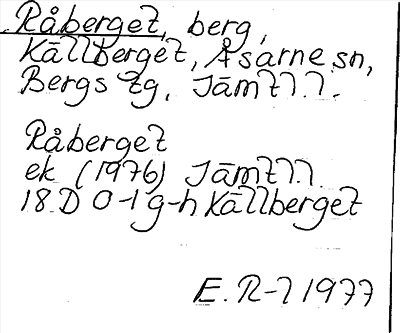 Råberget, berg,
Källberget, Åsarne sn,
Bergs tg, Jämtl.
Råberget
ek (1976) Jämtl.
18 D 0-1 g-h Källberget
E. R-l 1977